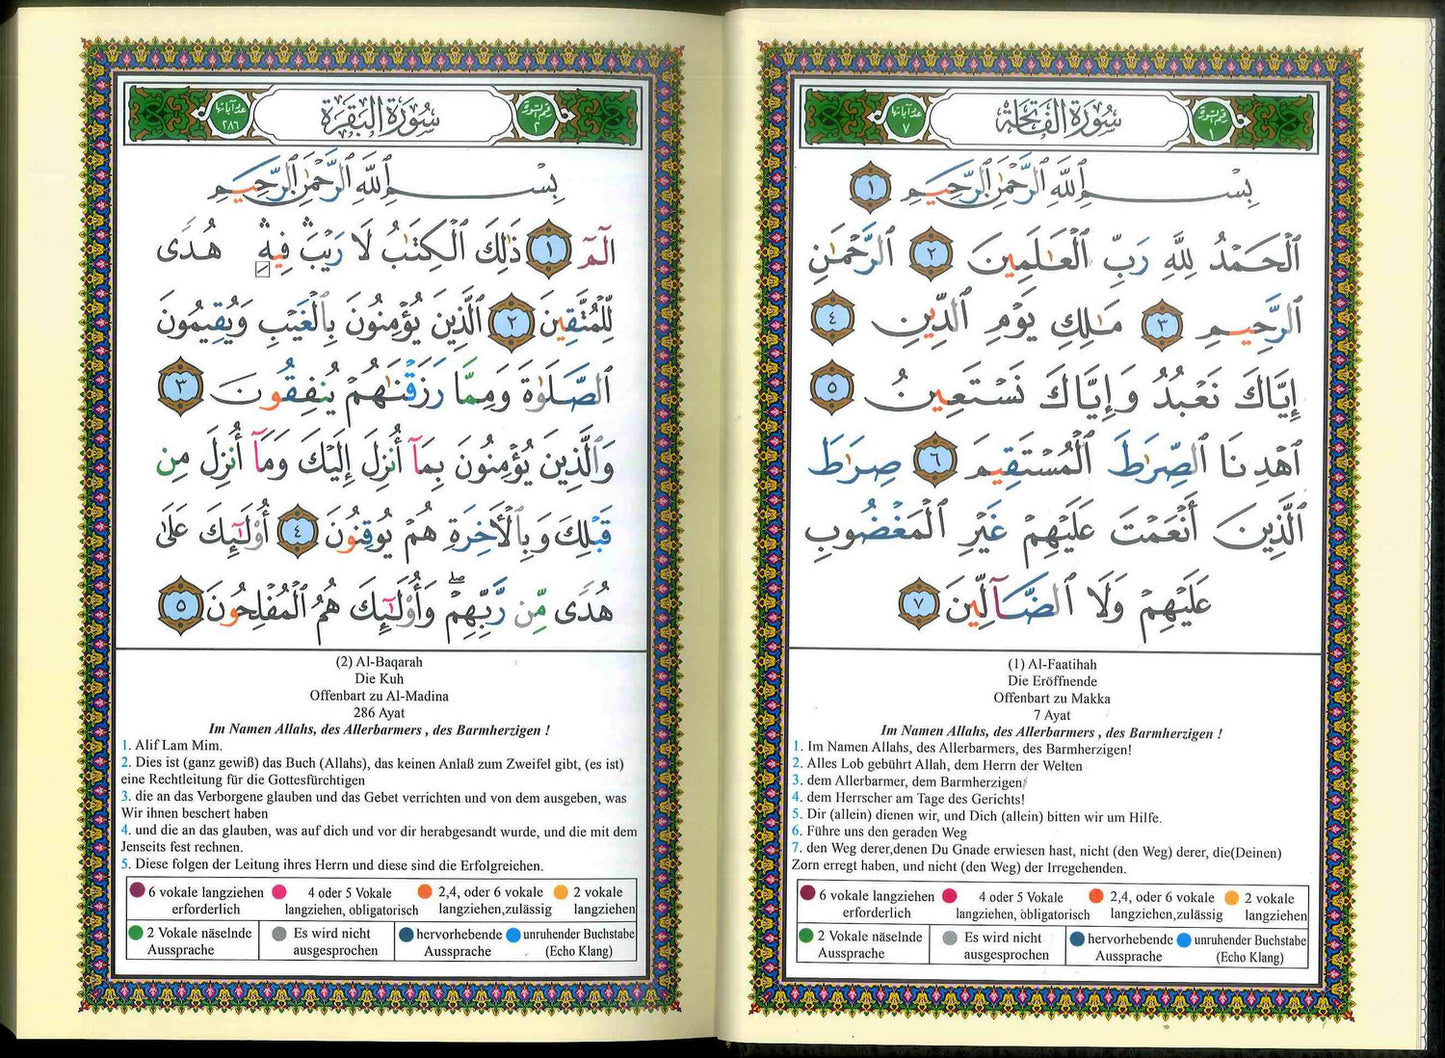 سُورَةُ الفَاتِحَة
رقم السورة
١
عدد آياتها
٧
بِسْمِ ٱللَّهِ ٱلرَّحْمَٰنِ ٱلرَّحِيمِ ١
ٱلْحَمْدُ لِلَّهِ رَبِّ ٱلْعَٰلَمِينَ ٢ ٱلرَّحْمَٰنِ
ٱلرَّحِيمِ ٣ مَٰلِكِ يَوْمِ ٱلدِّينِ ٤
إِيَّاكَ نَعْبُدُ وَإِيَّاكَ نَسْتَعِينُ ٥
ٱهْدِنَا ٱلصِّرَٰطَ ٱلْمُسْتَقِيمَ ٦ صِرَٰطَ
ٱلَّذِينَ أَنْعَمْتَ عَلَيْهِمْ غَيْرِ ٱلْمَغْضُوبِ
عَلَيْهِمْ وَلَا ٱلضَّآلِّينَ ٧
(1) Al-Faatihah
Die Eröffnende
Offenbart zu Makka
7 Ayat
Im Namen Allahs, des Allerbarmers , des Barmherzigen !
1. Im Namen Allahs, des Allerbarmers, des Barmherzigen!
2. Alles Lob gebührt Allah, dem Herrn der Welten
3. dem Allerbarmer, dem Barmherzigen
4. dem Herrscher am Tage des Gerichts!
5. Dir (allein) dienen wir, und Dich (allein) bitten wir um Hilfe.
6. Führe uns den geraden Weg
7. den Weg derer,denen Du Gnade erwiesen hast, nicht (den Weg) derer, die(Deinen)
Zorn erregt haben, und nicht (den Weg) der Irregehenden.
6 vokale langziehen
erforderlich
4 oder 5 Vokale
langziehen, obligatorisch
2,4, oder 6 vokale
langziehen,zulässig
2 vokale
langziehen
2 Vokale näselnde
Aussprache
Es wird nicht
ausgesprochen
hervorhebende
Aussprache
unruhender Buchstabe
(Echo Klang)
سُورَةُ البَقَرَة
رقم السورة
٢
عدد آياتها
٢٨٦
بِسْمِ ٱللَّهِ ٱلرَّحْمَٰنِ ٱلرَّحِيمِ
الٓمٓ ١ ذَٰلِكَ ٱلْكِتَٰبُ لَا رَيْبَ ۛ فِيهِ ۛ هُدًى
لِّلْمُتَّقِينَ ٢ ٱلَّذِينَ يُؤْمِنُونَ بِٱلْغَيْبِ وَيُقِيمُونَ
ٱلصَّلَوٰةَ وَمِمَّا رَزَقْنَٰهُمْ يُنفِقُونَ ٣
وَٱلَّذِينَ يُؤْمِنُونَ بِمَآ أُنزِلَ إِلَيْكَ وَمَآ أُنزِلَ مِن
قَبْلِكَ وَبِٱلْءَاخِرَةِ هُمْ يُوقِنُونَ ٤ أُو۟لَٰٓئِكَ عَلَىٰ
هُدًى مِّن رَّبِّهِمْ ۖ وَأُو۟لَٰٓئِكَ هُمُ ٱلْمُفْلِحُونَ ٥
(2) Al-Baqarah
Die Kuh
Offenbart zu Al-Madina
286 Ayat
Im Namen Allahs, des Allerbarmers , des Barmherzigen !
1. Alif Lam Mim.
2. Dies ist (ganz gewiß) das Buch (Allahs), das keinen Anlaß zum Zweifel gibt, (es ist)
eine Rechtleitung für die Gottesfürchtigen
3. die an das Verborgene glauben und das Gebet verrichten und von dem ausgeben, was
Wir ihnen beschert haben
4. und die an das glauben, was auf dich und vor dir herabgesandt wurde, und die mit dem
Jenseits fest rechnen.
5. Diese folgen der Leitung ihres Herrn und diese sind die Erfolgreichen.
6 vokale langziehen
erforderlich
4 oder 5 Vokale
langziehen, obligatorisch
2,4, oder 6 vokale
langziehen,zulässig
2 vokale
langziehen
2 Vokale näselnde
Aussprache
Es wird nicht
ausgesprochen
hervorhebende
Aussprache
unruhender Buchstabe
(Echo Klang)